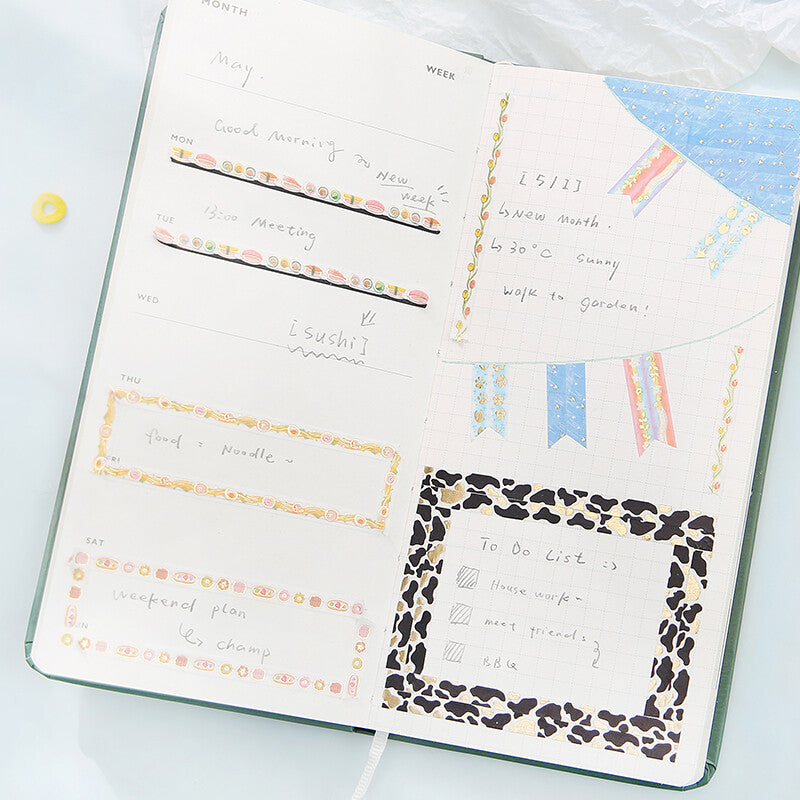 MONTH
May.
WEEK
MON
Good Morning ~
New
week
TUE
13:00 Meeting
WED
[sushi]
THU
food = Noodle ~
FRI
SAT
weekend plan
↳ champ
UN
[5/1]
↳ New month.
↳ 30°C sunny
walk to garden!
To Do List =>
House work~
meet friends
BBQ